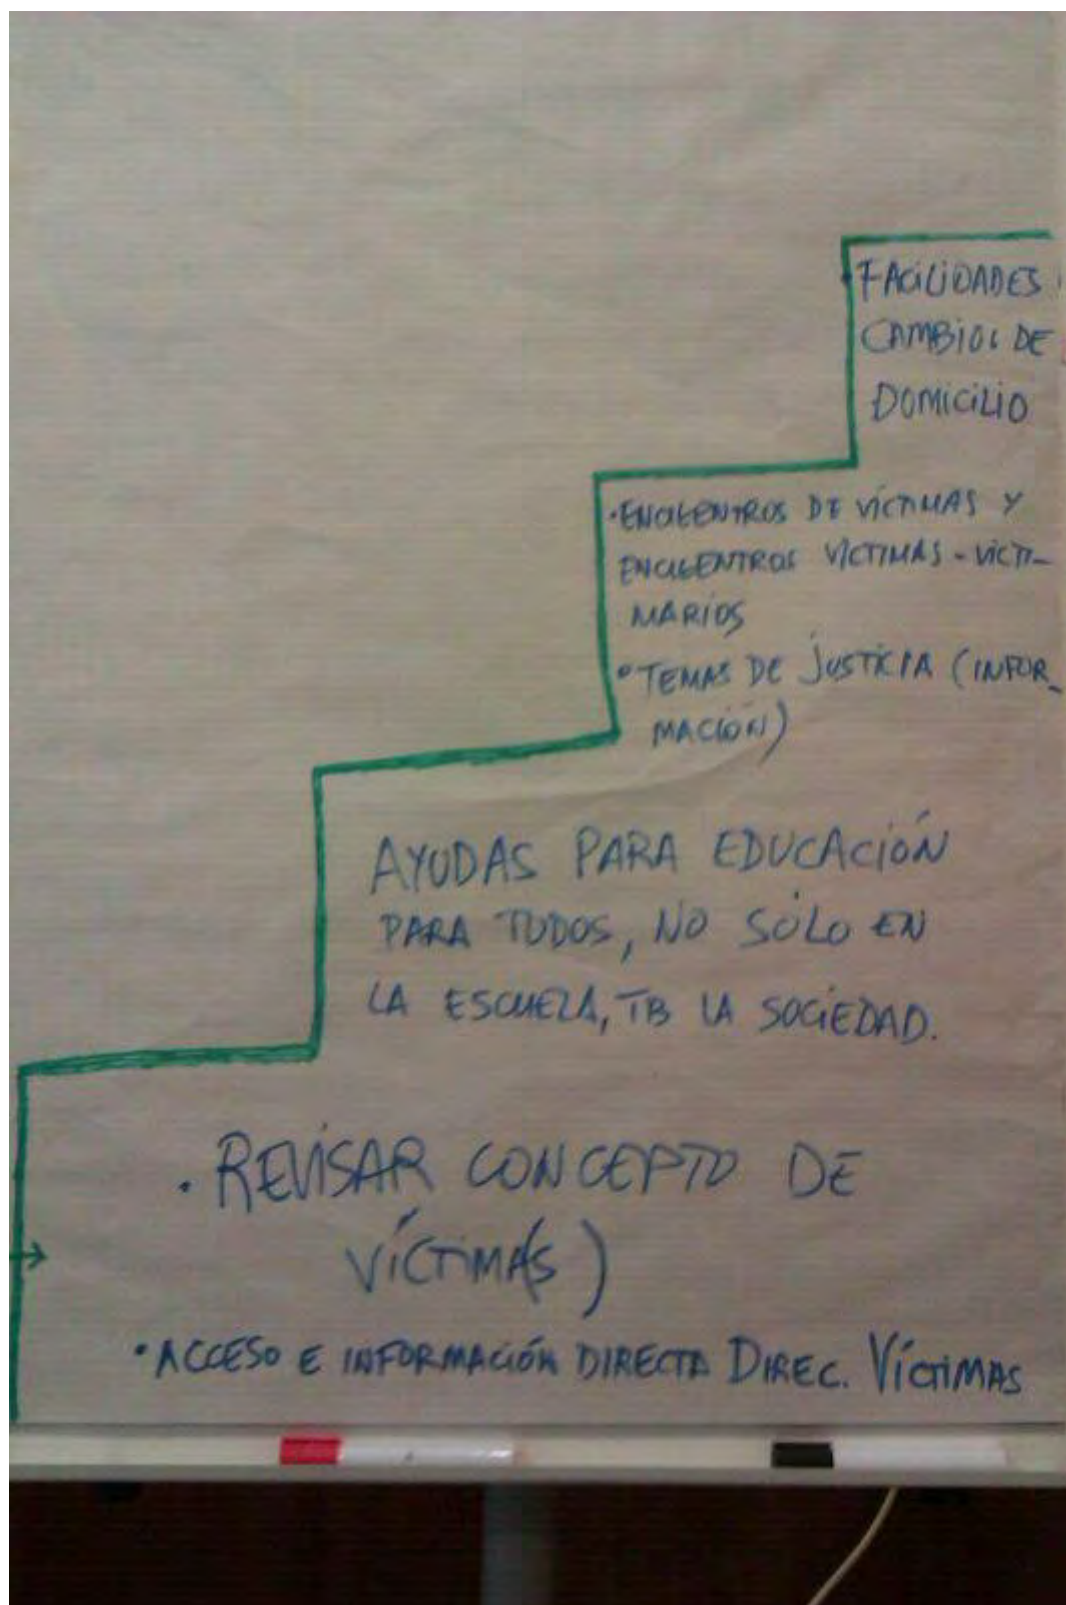 FACILIDADES
CAMBIOS DE
DOMICILIO
·ENCUENTROS DE VÍCTIMAS Y
ENCUENTROS VÍCTIMAS-VICTI-
MARIOS
·TEMAS DE JUSTICIA (INFOR-
MACIÓN)
AYUDAS PARA EDUCACIÓN
PARA TODOS, NO SÓLO EN
LA ESCUELA, TB LA SOCIEDAD.
·REVISAR CONCEPTO DE
VÍCTIMA(S)
·ACCESO E INFORMACIÓN DIRECTA DIREC. VÍCTIMAS